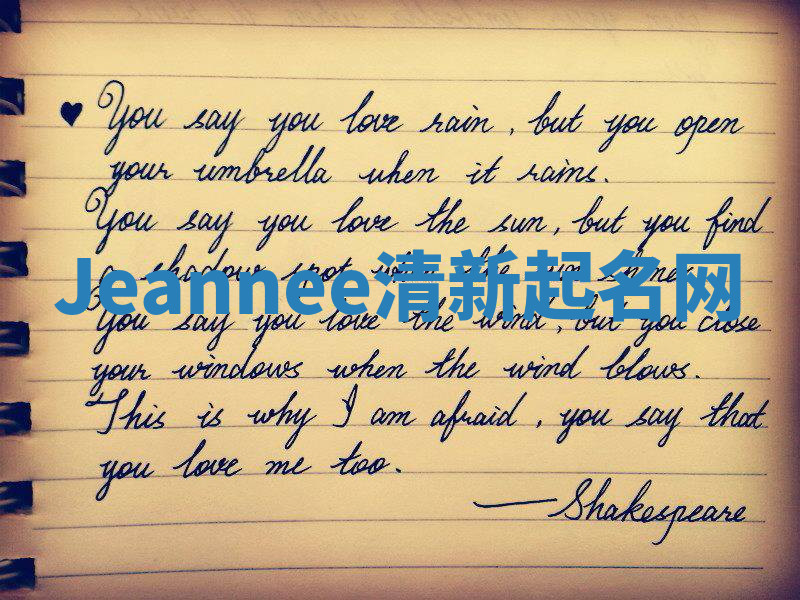 You say you love rain, but you open
your umbrella when it rains.
You say you love the sun, but you find
a shadow spot when the sun shines.
Jeannee清新起名网
You say you love the wind, but you close
your windows when the wind blows.
This is why I am afraid, you say that
you love me too.
—Shakespeare